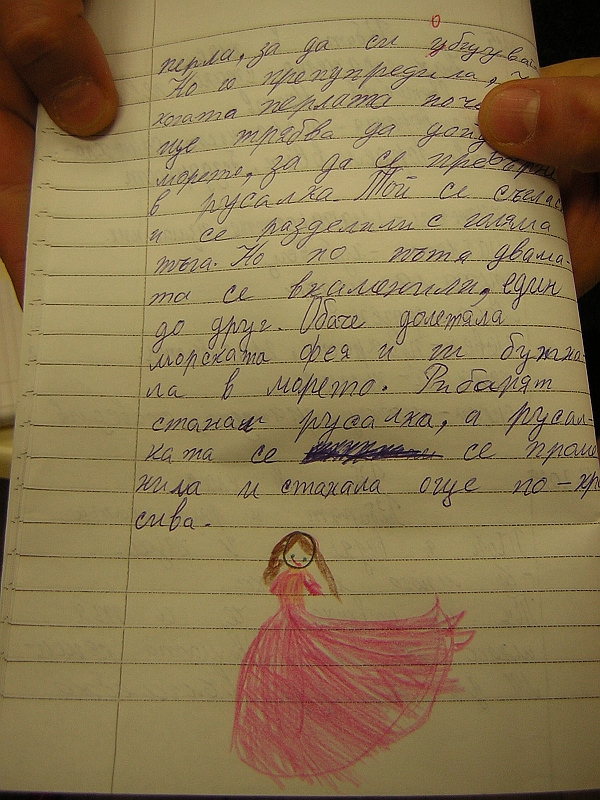 перла, за да си
Но го предупредила,
когата перлата поче
ще трябва да допу
морето, за да се превърне
в русалка. Той се съглас
и се разделили с голяма
тъга. Но по пътя двама-
та се вкаменили, един
до друг. Обаче долетяла
морската фея и ги бутна-
ла в морето. Рибарят
станал русалка, а русал-
ката се се проме
нила и станала още по-кра
сива.